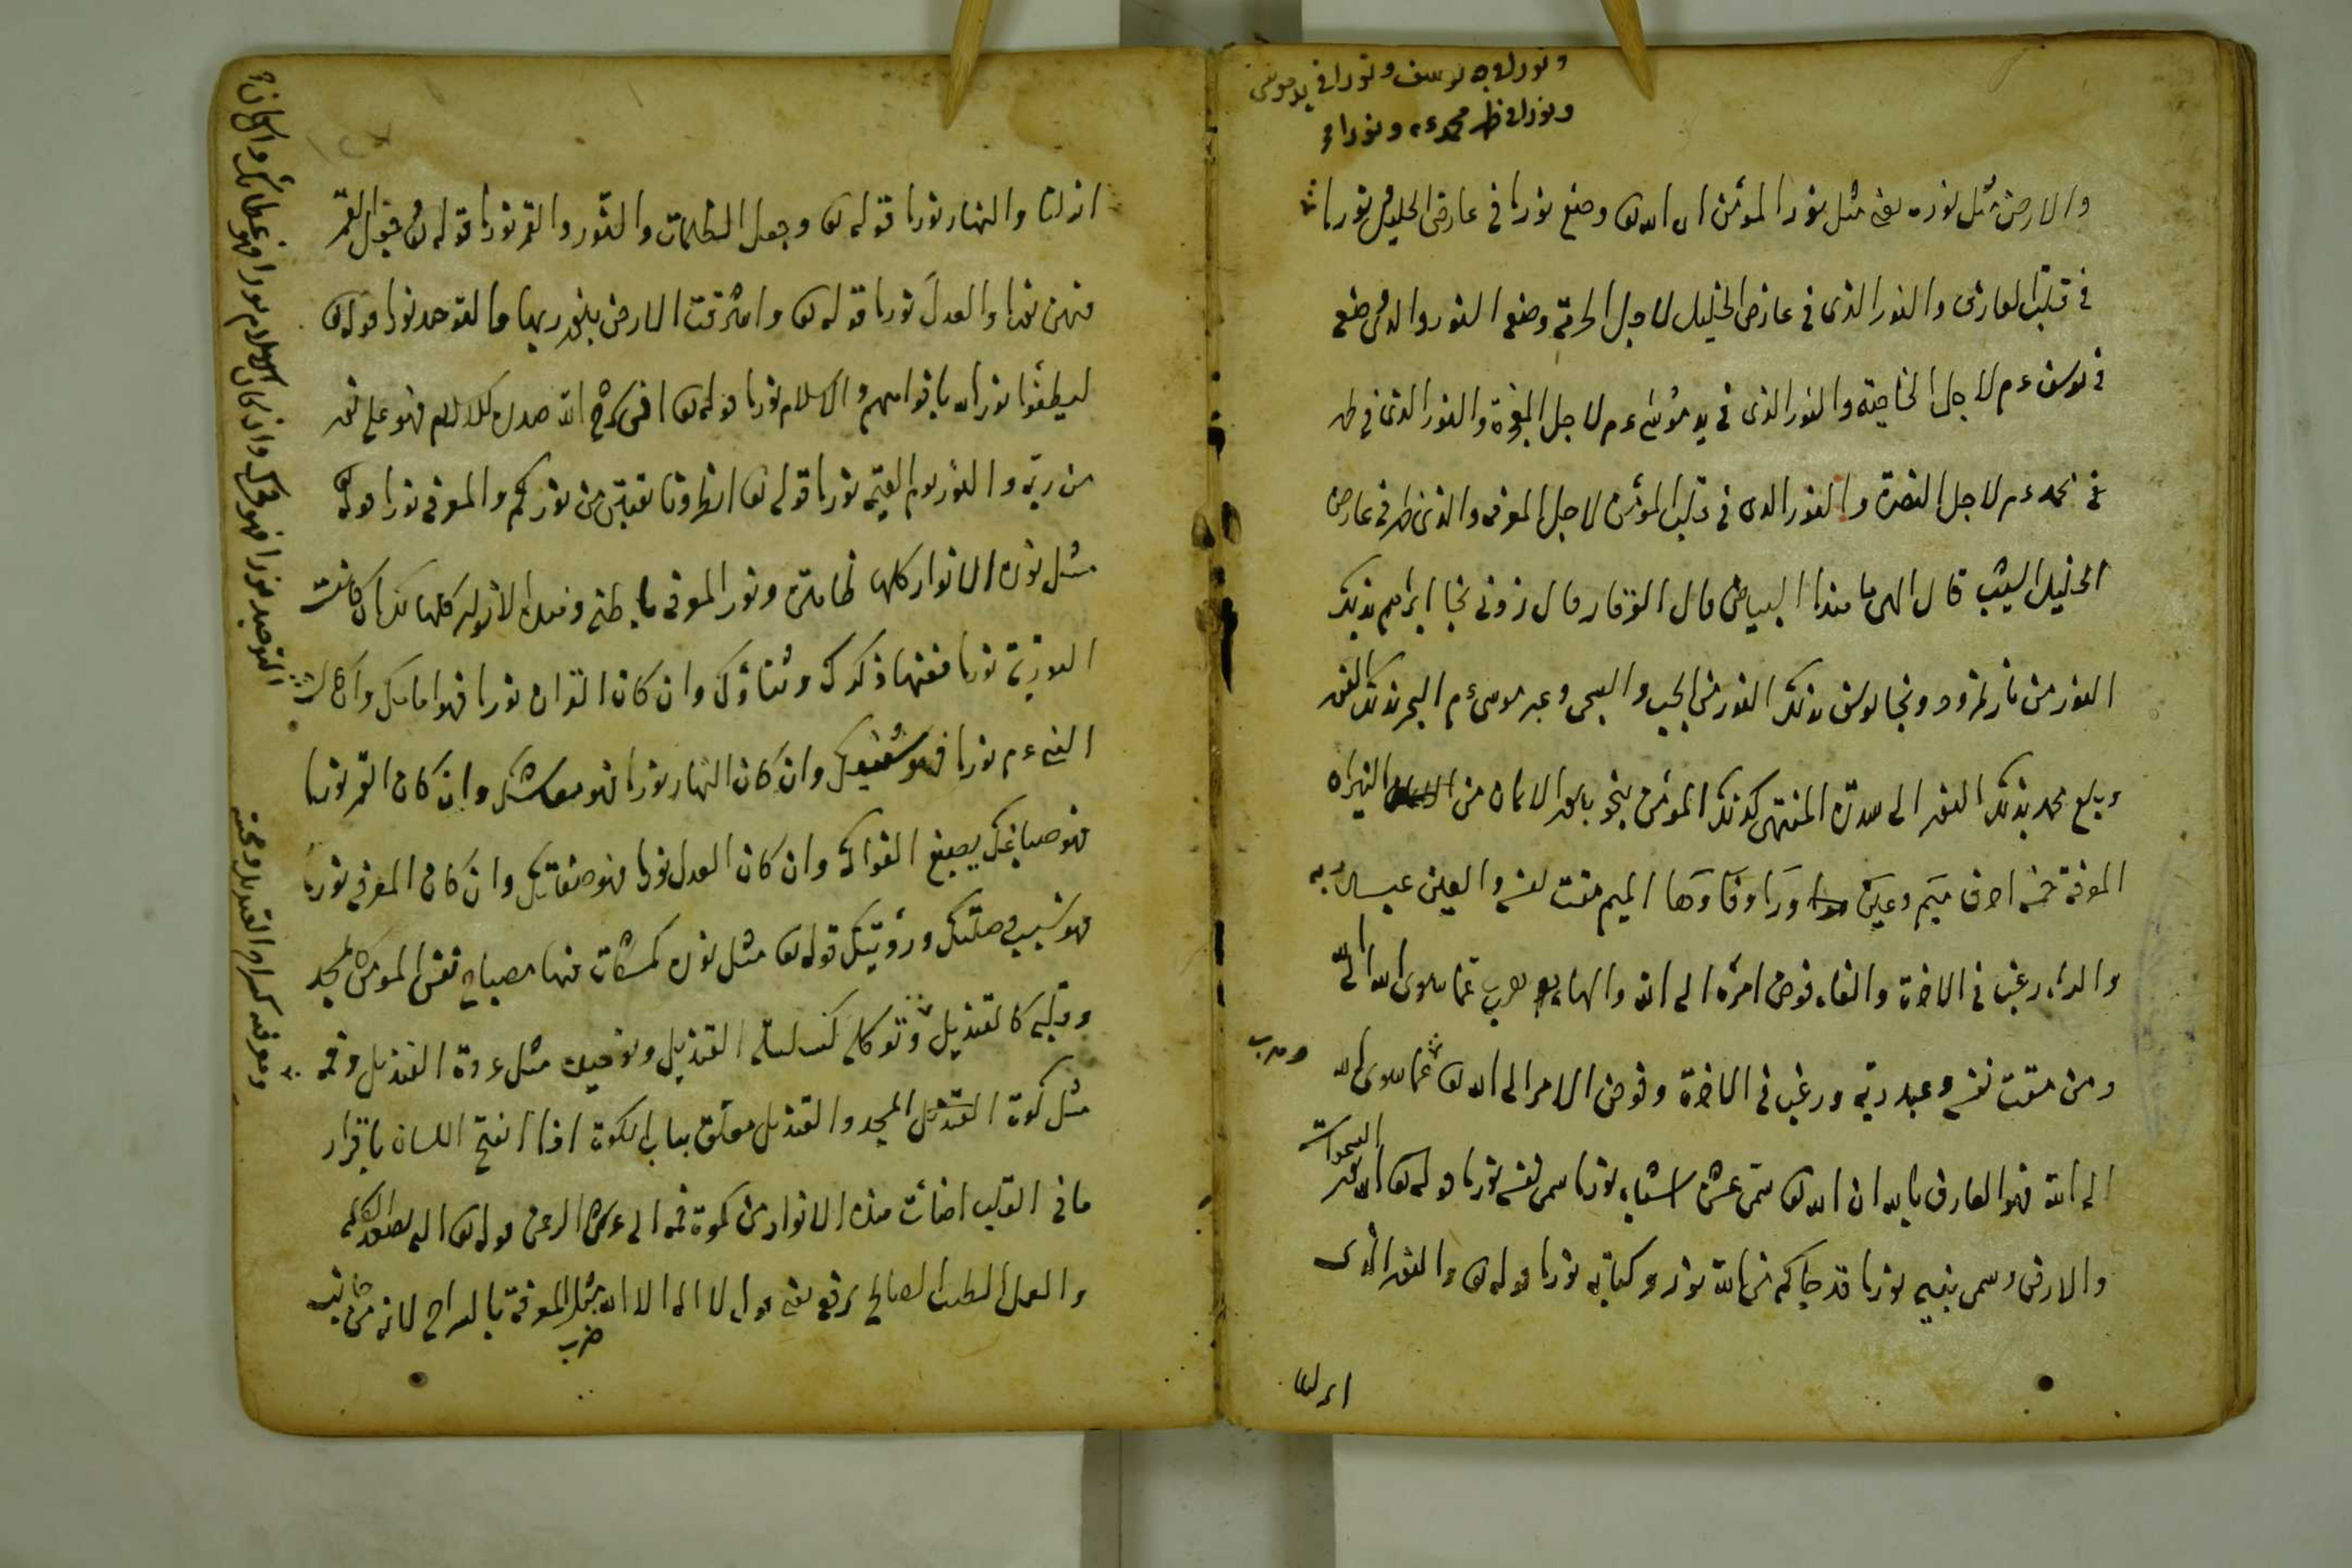 ونورا في وجه يوسف ونورا في يد موسى
ونورا في ظهر محمد ءم ونورا في
والارض مثل نوره يعنى مثل نور المؤمن ان الله تعا وضع نورا في عارض الخليل ونورا
في قلب العارف والنور الذى في عارض الخليل لاجل الحرمة وضع النور والذى وضع
في يوسف ءم لاجل الخاصية والنور الذى في يد موسى ءم لاجل المعجزة والنور الذى في ظهر
في محمد ءم لاجل النصرة والنور الذى في قلب المؤمن لاجل المعرفة والذى ظهر في عارض
الخليل الشيب قال الهى ما هذا البياض قال الوقار قال زدنى نجا ابراهيم بذلك
النور من نار نمرود ونجا يوسف بذلك النور من الجب والسجن وعبر موسى ءم البحر بذلك النور
وبلغ محمد بذلك النور الى سدرة المنتهى كذلك المؤمن ينجو بنور الايمان من النيران
المعرفة خمسة احرف ميم وعين ورا وفا وها الميم مقت نفسه والعين عبد ربه
والراء رغب في الاخرة والفاء فوض امره الى الله والهاء هرب عما سوى الله الى الله
ومن مقت نفسه وعبد ربه ورغب في الاخرة وفوض الامر الى الله تعا وهرب عما سوى الله
الى الله فهو العارف بالله ان الله تعا سمى عشر اشياء نورا سمى نفسه نورا قوله تعا الله نور السموات
والارض وسمى نبيه نورا قد جاءكم من الله نور وكتابه نورا قوله تعا والنور الذى
انزلنا
انزلنا والنهار نورا قوله تعا وجعل الظلمات والنور والقمر نورا قوله تعا وجعل القمر
فيهن نورا والعدل نورا قوله تعا واشرقت الارض بنور ربها والتوحيد نورا قوله تعا
ليطفؤا نور الله بافواههم والاسلام نورا قوله تعا افمن شرح الله صدره للاسلام فهو على نور
من ربه والنور يوم القيمة نورا قوله تعا انظرونا نقتبس من نوركم والمعرفة نورا قوله تعا
مثل نوره الانوار كلها ظاهرة ونور المعرفة باطنة وهذه الانوار كلها لك ان كانت
التورية نورا ففيها ذكرك وثناؤك وان كان القران نورا فهو امامك وان كان
النبى ءم نورا فهو شفيعك وان كان النهار نورا فهو معاشك وان كان القمر نورا
فهو صباغك يصبغ الفواكه وان كان العدل نورا فهو صفاتك وان كان المعرفة نورا
فهو سبب وصلتك ورؤيتك قوله تعا مثل نوره كمشكاة فيها مصباح نفس المؤمن كمسجد
وقلبه كالقنديل وتوكله كسلسلة القنديل وتوحيده مثل عروة القنديل وفمه
مثل كوة القنديل المسجد والقنديل معلق بباب الكوة اذا انفتح اللسان باقرار
ما في القلب اضائت هذه الانوار من كوة فمه الى عرش الرحمن قوله تعا اليه يصعد الكلم
الطيب والعمل الصالح يرفعه يعنى قول لا اله الا الله ضرب مثل المعرفة بالسراج لانه من جانب
التوحيد نورا فهو فخرك وان كان الاسلام نورا فهو عطائك وان كان
ومعرفته كسراج القنديل